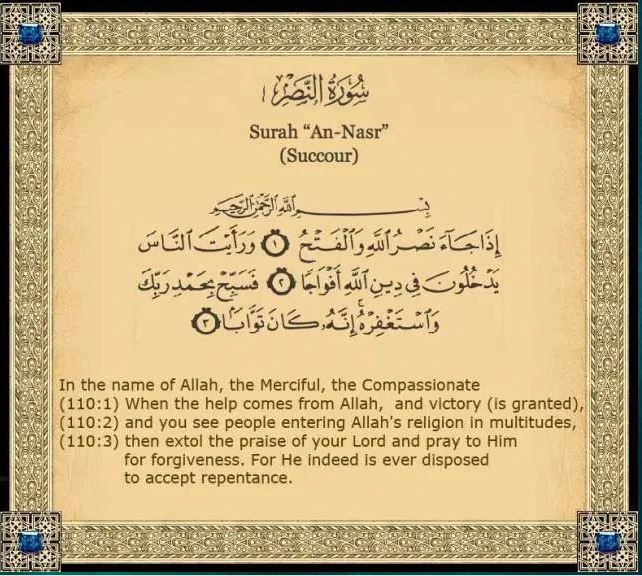 سُورَةُ النَّصْرِ
Surah “An-Nasr”
(Succour)
بِسْمِ اللَّهِ الرَّحْمَٰنِ الرَّحِيمِ
إِذَا جَآءَ نَصْرُ اللَّهِ وَالْفَتْحُ ١ وَرَأَيْتَ النَّاسَ
يَدْخُلُونَ فِي دِينِ اللَّهِ أَفْوَاجًا ٢ فَسَبِّحْ بِحَمْدِ رَبِّكَ
وَاسْتَغْفِرْهُ ۚ إِنَّهُۥ كَانَ تَوَّابًۢا ٣
In the name of Allah, the Merciful, the Compassionate
(110:1) When the help comes from Allah,  and victory (is granted),
(110:2) and you see people entering Allah's religion in multitudes,
(110:3) then extol the praise of your Lord and pray to Him
for forgiveness. For He indeed is ever disposed
to accept repentance.